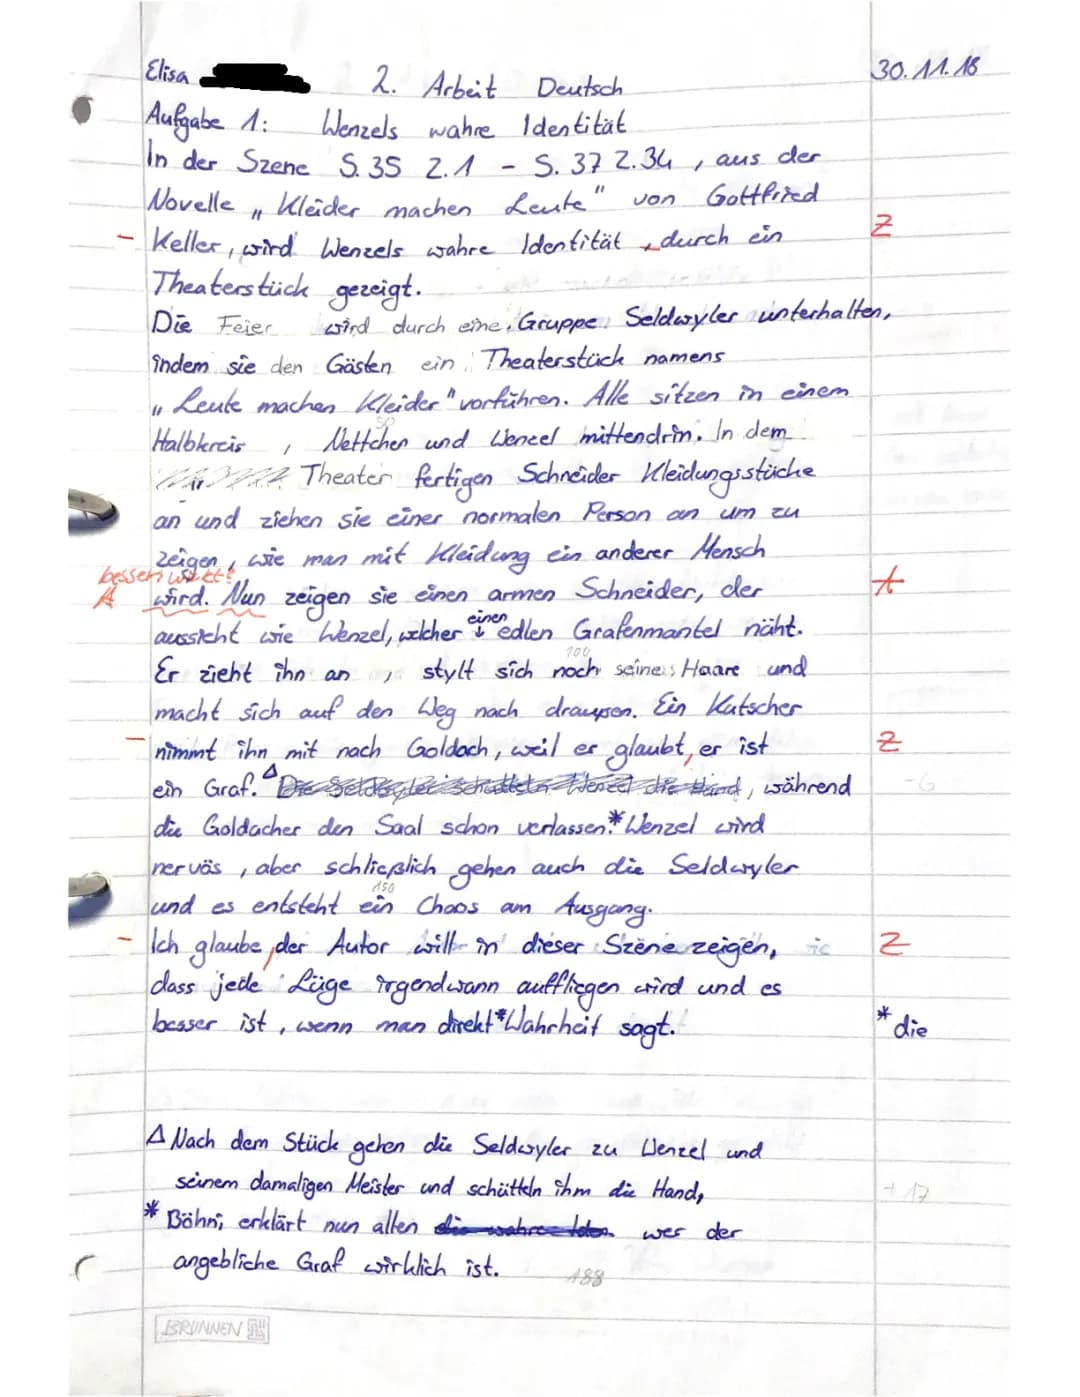 Elisa
30.11.18
2. Arbeit Deutsch
Aufgabe 1: Wenzels wahre Identität
In der Szene S. 35 Z. 1 - S. 37 Z. 34, aus der
Novelle „Kleider machen Leute" von Gottfried
- Keller, wird Wenzels wahre Identität, durch ein Z
Theaterstück gezeigt.
Die Feier wird durch eine Gruppe Seldwyler unterhalten,
indem sie den Gästen ein Theaterstück namens
„Leute machen Kleider" vorführen. Alle sitzen in einem
50
Halbkreis, Nettchen und Wenzel mittendrin. In dem
Theater fertigen Schneider Kleidungsstücke
an und ziehen sie einer normalen Person an um zu
zeigen, wie man mit Kleidung ein anderer Mensch
besser wirkt?
A wird. Nun zeigen sie einen armen Schneider, der A
einen
aussieht wie Wenzel, welcher ↓ edlen Grafenmantel näht.
100
Er zieht ihn an, stylt sich noch seine Haare und
macht sich auf den Weg nach draußen. Ein Kutscher
- nimmt ihn mit nach Goldach, weil er glaubt, er ist Z
ein Graf. Δ Die Seldwyler schütteln Wenzel die Hand, während -6
die Goldacher den Saal schon verlassen.* Wenzel wird
nervös, aber schließlich gehen auch die Seldwyler
150
und es entsteht ein Chaos am Ausgang.
- Ich glaube, der Autor will in dieser Szene zeigen, Z
dass jede Lüge irgendwann auffliegen wird und es
besser ist, wenn man direkt * Wahrheit sagt. * die
Δ Nach dem Stück gehen die Seldwyler zu Wenzel und
seinem damaligen Meister und schütteln ihm die Hand, + 17
* Böhni erklärt nun allen die wahre Iden wer der
angebliche Graf wirklich ist. 188
BRUNNEN